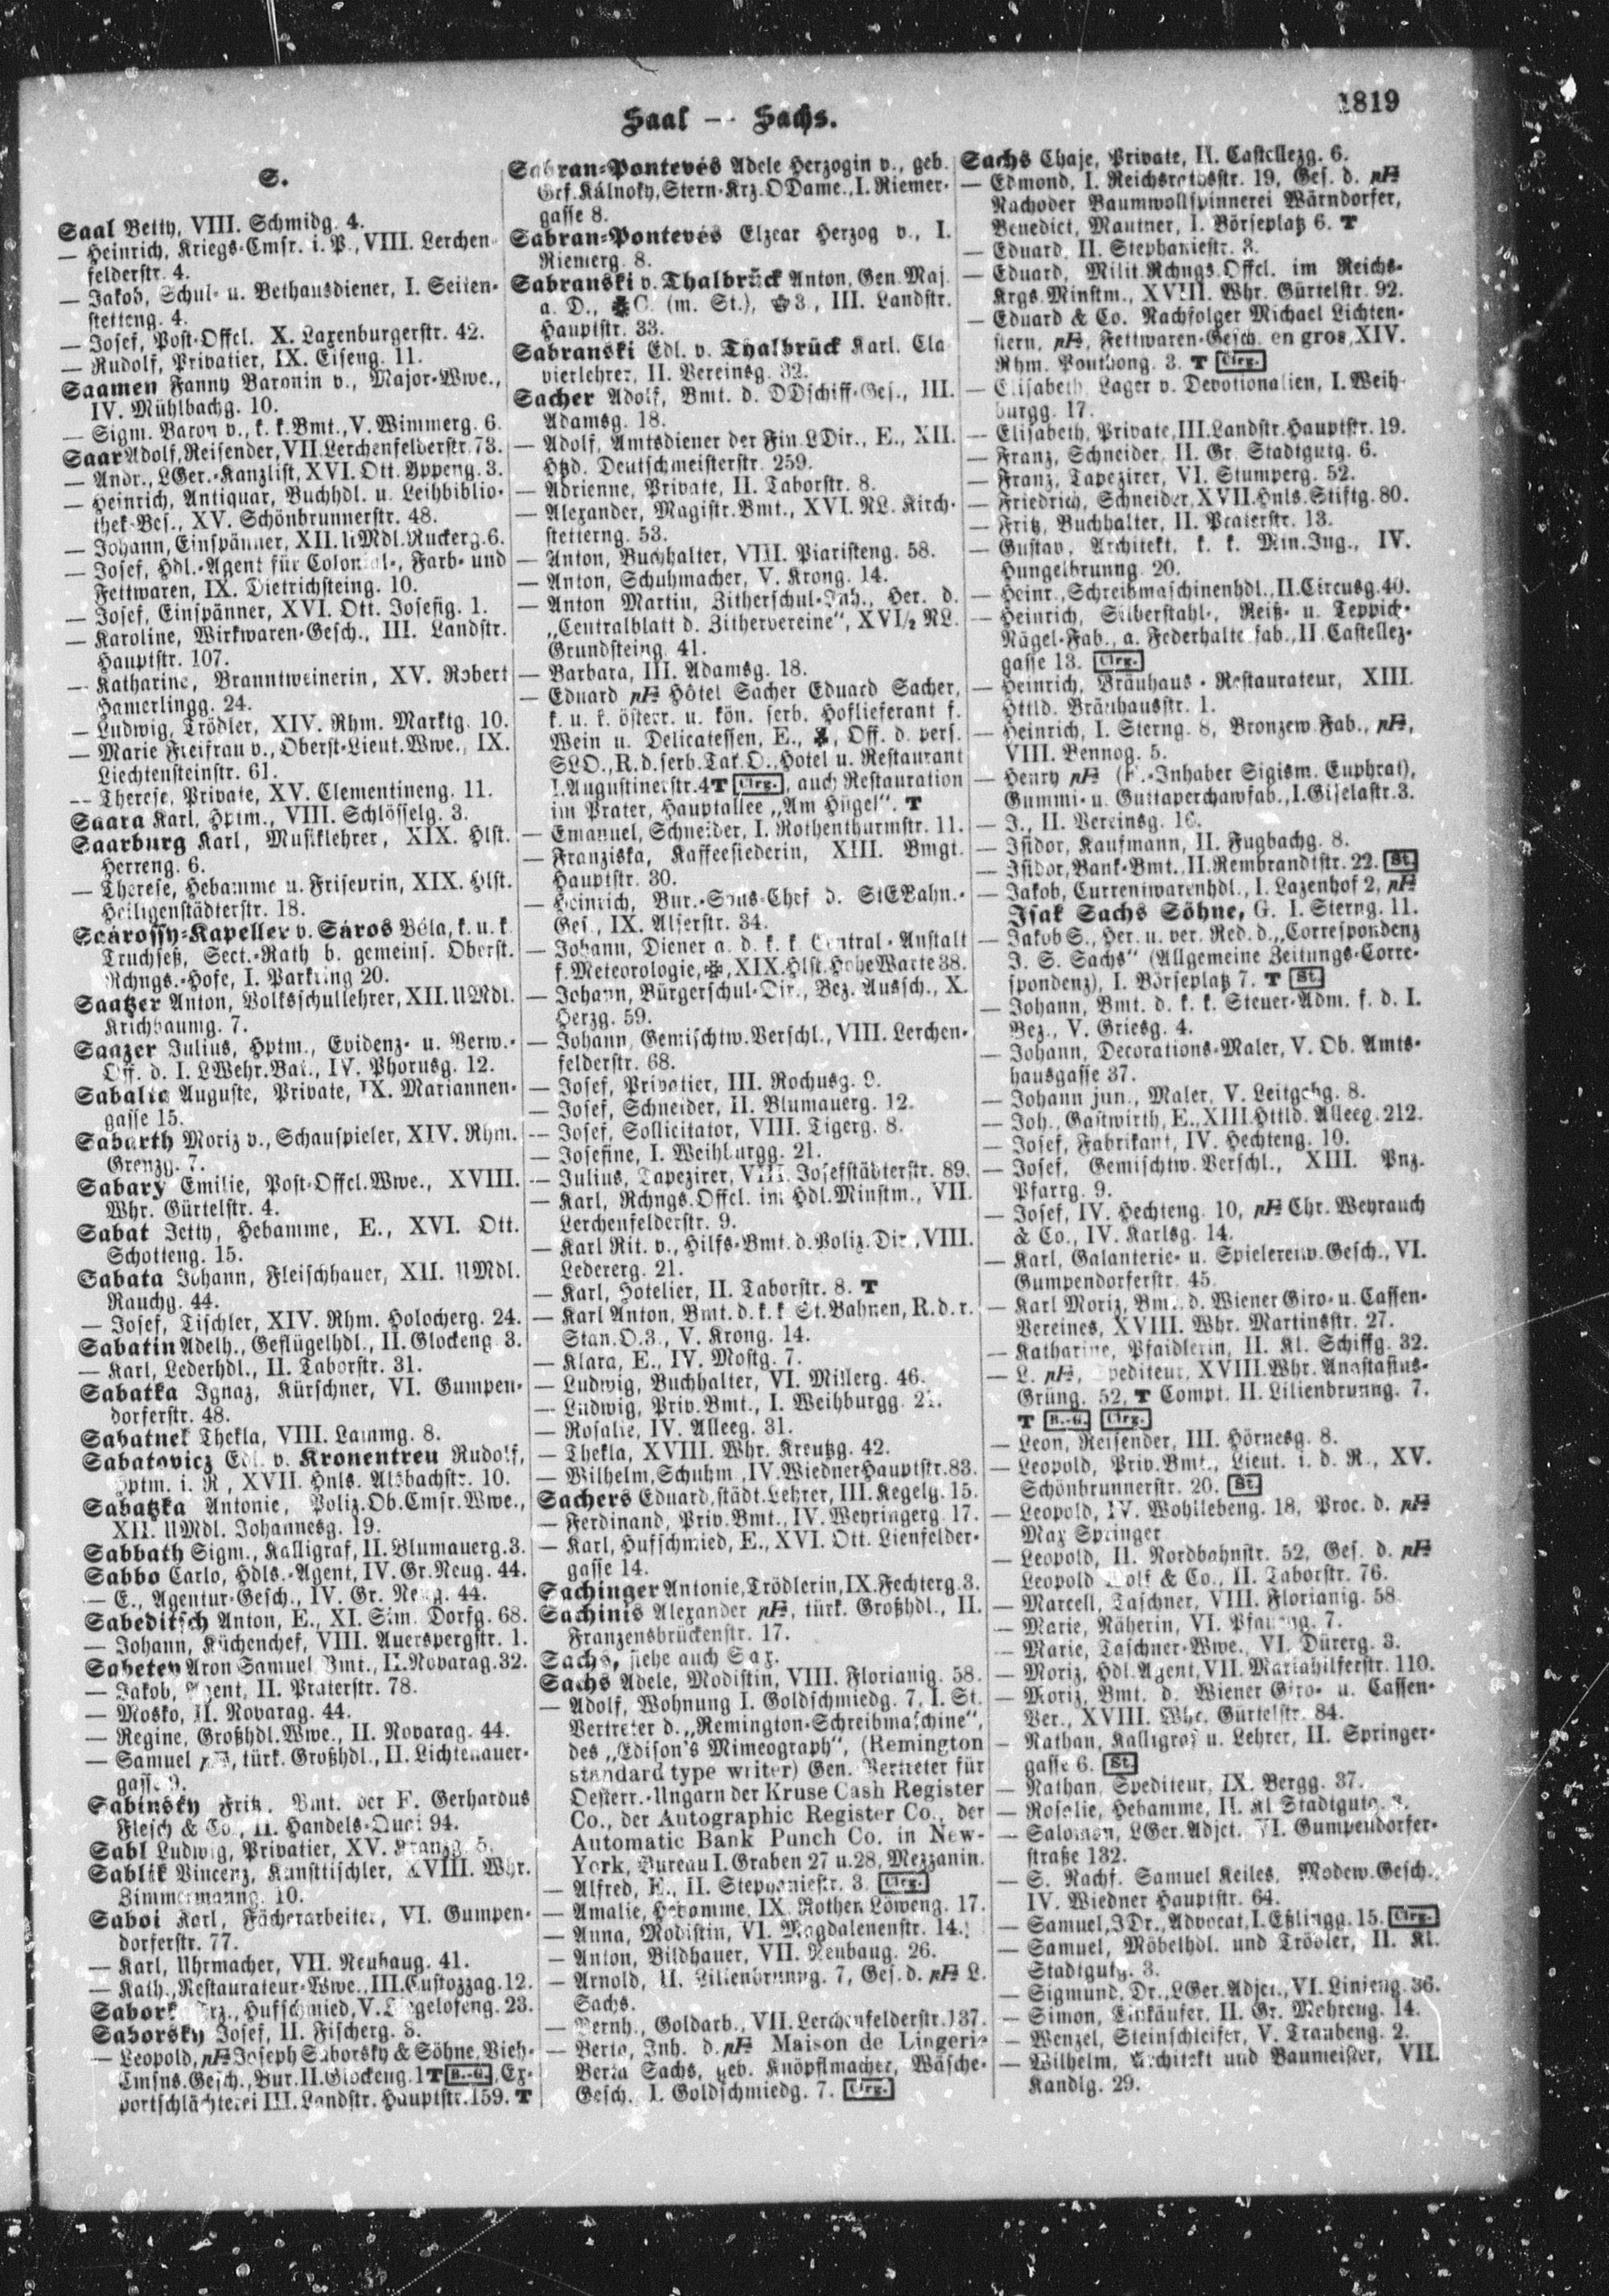 Saal — Sachs.
1819
S.
Saal Betty, VIII. Schmidg. 4.
— Heinrich, Kriegs-Cmsr. i. P., VIII. Lerchen-
felderstr. 4.
— Jakob, Schul- u. Bethausdiener, I. Seiten-
stetteng. 4.
— Josef, Post-Offcl. X. Laxenburgerstr. 42.
— Rudolf, Privatier, IX. Eiseng. 11.
Saamen Fanny Baronin v., Major-Wwe.,
IV. Mühlbachg. 10.
— Sigm. Baron v., k. k. Bmt., V. Wimmerg. 6.
Saar Adolf, Reisender, VII. Lerchenfelderstr. 73.
— Andr., LGer.-Kanzlist, XVI. Ott. Yppeng. 3.
— Heinrich, Antiquar, Buchhdl. u. Leihbiblio-
thek-Bes., XV. Schönbrunnerstr. 48.
— Johann, Einspänner, XII. UMdl. Ruckerg. 6.
— Josef, Hdl.-Agent für Colonial-, Farb- und
Fettwaren, IX. Dietrichsteing. 10.
— Josef, Einspänner, XVI. Ott. Josefig. 1.
— Karoline, Wirkwaren-Gesch., III. Landstr.
Hauptstr. 107.
— Katharine, Branntweinerin, XV. Robert
Hamerlingg. 24.
— Ludwig, Trödler, XIV. Rhm. Marktg. 10.
— Marie Freifrau v., Oberst-Lieut. Wwe., IX.
Liechtensteinstr. 61.
— Therese, Private, XV. Clementineng. 11.
Saara Karl, Hptm., VIII. Schlösselg. 3.
Saarburg Karl, Musiklehrer, XIX. Hlst.
Herreng. 6.
— Therese, Hebamme u. Friseurin, XIX. Hlst.
Heiligenstädterstr. 18.
Saárossy-Kapeller v. Sáros Béla, k. u. k.
Truchseß, Sect.-Rath b. gemeins. Oberst.
Rchngs.-Hofe, I. Parkring 20.
Saatzer Anton, Volksschullehrer, XII. UMdl.
Krichbaumg. 7.
Saazer Julius, Hptm., Evidenz- u. Verw.-
Off. d. I. LWehr. Bat., IV. Phorusg. 12.
Sabalia Auguste, Private, IX. Mariannen-
gasse 15.
Sabarth Moriz v., Schauspieler, XIV. Rhm.
Grenzg. 7.
Sabary Emilie, Post-Offcl. Wwe., XVIII.
Whr. Gürtelstr. 4.
Sabat Jetty, Hebamme, E., XVI. Ott.
Schotteng. 15.
Sabata Johann, Fleischhauer, XII. UMdl.
Rauchg. 44.
— Josef, Tischler, XIV. Rhm. Holocherg. 24.
Sabatin Adelh., Geflügelhdl., II. Glockeng. 3.
— Karl, Lederhdl., II. Taborstr. 31.
Sabatka Ignaz, Kürschner, VI. Gumpen-
dorferstr. 48.
Sabatnek Thekla, VIII. Lammg. 8.
Sabatovicz Edl. v. Kronentreu Rudolf,
Hptm. i. R., XVII. Hnls. Alsbachstr. 10.
Sabatzka Antonie, Poliz. Ob. Cmsr. Wwe.,
XII. UMdl. Johannesg. 19.
Sabbath Sigm., Kalligraf, II. Blumauerg. 3.
Sabbo Carlo, Hdls.-Agent, IV. Gr. Neug. 44.
— E., Agentur-Gesch., IV. Gr. Neug. 44.
Sabeditsch Anton, E., XI. Sim. Dorfg. 68.
— Johann, Küchenchef, VIII. Auerspergstr. 1.
Sabetey Aron Samuel, Bmt., II. Novarag. 32.
— Jakob, Agent, II. Praterstr. 78.
— Mosko, II. Novarag. 44.
— Regine, Großhdl. Wwe., II. Novarag. 44.
— Samuel, türk. Großhdl., II. Lichtenauer-
gasse 9.
Sabinsky Fritz, Bmt. der F. Gerhardus
Flesch & Co., II. Handels-Quai 94.
Sabl Ludwig, Privatier, XV. Kranzg. 5.
Sablik Vincenz, Kunsttischler, XVIII. Whr.
Zimmermanng. 10.
Saboi Karl, Fächerarbeiter, VI. Gumpen-
dorferstr. 77.
— Karl, Uhrmacher, VII. Neubaug. 41.
— Kath., Restaurateur-Wwe., III. Custozzag. 12.
Sabork Frz., Hufschmied, V. Ziegelofeng. 23.
Saborsky Josef, II. Fischerg. 8.
— Leopold, pF Joseph Saborsky & Söhne, Vieh-
Cmsns. Gesch., Bur. II. Glockeng. 1 T B.-G., Ex-
portschlächterei III. Landstr. Hauptstr. 159. T
Sabran-Pontevés Adele Herzogin v., geb.
Grf. Kálnoky, Stern-Krz. ODame., I. Riemer-
gasse 8.
Sabran-Pontevés Elzear Herzog v., I.
Riemerg. 8.
Sabranski v. Thalbrück Anton, Gen. Maj.
a. D., C. (m. St.), 3., III. Landstr.
Hauptstr. 33.
Sabranski Edl. v. Thalbrück Karl, Cla
vierlehrer, II. Vereinsg. 32.
Sacher Adolf, Bmt. d. DDschiff-Ges., III.
Adamsg. 18.
— Adolf, Amtsdiener der Fin. LDir., E., XII.
Htzd. Deutschmeisterstr. 259.
— Adrienne, Private, II. Taborstr. 8.
— Alexander, Magistr. Bmt., XVI. NL. Kirch-
stetterng. 53.
— Anton, Buchhalter, VIII. Piaristeng. 58.
— Anton, Schuhmacher, V. Krong. 14.
— Anton Martin, Zitherschul-Inh., Her. d.
„Centralblatt d. Zithervereine“, XVI/2 NL.
Grundsteing. 41.
— Barbara, III. Adamsg. 18.
— Eduard pF Hôtel Sacher Eduard Sacher,
k. u. k. österr. u. kön. serb. Hoflieferant f.
Wein u. Delicatessen, E., Off. d. pers.
SLO., R. d. serb. Tak. O., Hotel u. Restaurant
I. Augustinerstr. 4 T Clrg., auch Restauration
im Prater, Hauptallee „Am Hügel“. T
— Emanuel, Schneider, I. Rothenthurmstr. 11.
— Franziska, Kaffeesiederin, XIII. Bmgt.
Hauptstr. 30.
— Heinrich, Bur.-Chef d. StEBahn.-
Ges., IX. Alserstr. 34.
— Johann, Diener a. d. k. k. Central-Anstalt
f. Meteorologie, XIX. Hlst. Hohe Warte 38.
— Johann, Bürgerschul-Dir., Bez. Aussch., X.
Herzg. 59.
— Johann, Gemischtw. Verschl., VIII. Lerchen-
felderstr. 68.
— Josef, Privatier, III. Rochusg. 9.
— Josef, Schneider, II. Blumauerg. 12.
— Josef, Sollicitator, VIII. Tigerg. 8.
— Josefine, I. Weihburgg. 21.
— Julius, Tapezirer, VIII. Josefstädterstr. 89.
— Karl, Rchngs. Offcl. im Hdl. Minstm., VII.
Lerchenfelderstr. 9.
— Karl Rit. v., Hilfs-Bmt. d. Poliz. Dir., VIII.
Ledererg. 21.
— Karl, Hotelier, II. Taborstr. 8. T
— Karl Anton, Bmt. d. k. k. St. Bahnen, R. d. r.
Stan. O. 3., V. Krong. 14.
— Klara, E., IV. Mostg. 7.
— Ludwig, Buchhalter, VI. Millerg. 46.
— Ludwig, Priv. Bmt., I. Weihburgg.
— Rosalie, IV. Alleeg. 31.
— Thekla, XVIII. Whr. Kreutzg. 42.
— Wilhelm, Schuhm., IV. Wiedner Hauptstr. 83.
Sachers Eduard, städt. Lehrer, III. Kegelg. 15.
— Ferdinand, Priv. Bmt., IV. Weyringerg. 17.
— Karl, Hufschmied, E., XVI. Ott. Lienfelder-
gasse 14.
Sachinger Antonie, Trödlerin, IX. Fechterg. 3.
Sachinis Alexander pF, türk. Großhdl., II.
Franzensbrückenstr. 17.
Sachs, siehe auch Sax.
Sachs Adele, Modistin, VIII. Florianig. 58.
— Adolf, Wohnung I. Goldschmiedg. 7, I. St.
Vertreter d. „Remington-Schreibmaschine“,
des „Edison's Mimeograph“, (Remington
standard type writer) Gen. Vertreter für
Oesterr.-Ungarn der Kruse Cash Register
Co., der Autographic Register Co., der
Automatic Bank Punch Co. in New-
York, Bureau I. Graben 27 u. 28, Mezzanin.
— Alfred, E., II. Stephaniestr. 3. Clrg.
— Amalie, Hebamme, IX. Rothen Löweng. 17.
— Anna, Modistin, VI. Magdalenenstr. 14.
— Anton, Bildhauer, VII. Neubaug. 26.
— Arnold, II. Lilienbrunng. 7, Ges. d. pF L.
Sachs.
— Bernh., Goldarb., VII. Lerchenfelderstr. 137.
— Berta, Inh. d. pF Maison de Lingerie
Berta Sachs, geb. Knöpflmacher, Wäsche-
Gesch. I. Goldschmiedg. 7. Clrg.
Sachs Chaje, Private, II. Castellezg. 6.
— Edmond, I. Reichsrathsstr. 19, Ges. d. pF
Nachoder Baumwollspinnerei Wärndorfer,
Benedict, Mautner, I. Börseplatz 6. T
— Eduard, II. Stephaniestr. 3.
— Eduard, Milit. Rchngs. Offcl. im Reichs-
Krgs. Minstm., XVIII. Whr. Gürtelstr. 92.
— Eduard & Co. Nachfolger Michael Lichten-
stern, pF, Fettwaren-Gesch. en gros, XIV.
Rhm. Ponthong. 3. T Clrg.
— Elisabeth, Lager v. Devotionalien, I. Weih-
burgg. 17.
— Elisabeth, Private, III. Landstr. Hauptstr. 19.
— Franz, Schneider, II. Gr. Stadtgutg. 6.
— Franz, Tapezirer, VI. Stumperg. 52.
— Friedrich, Schneider, XVII. Hnls. Stiftg. 80.
— Fritz, Buchhalter, II. Praterstr. 13.
— Gustav, Architekt, k. k. Min. Ing., IV.
Hungelbrunng. 20.
— Heinr., Schreibmaschinenhdl., II. Circusg. 40.
— Heinrich, Silberstahl-, Reiß- u. Teppich-
Nägel-Fab., a. Federhalterfab., II. Castellez-
gasse 13. Clrg.
— Heinrich, Bräuhaus-Restaurateur, XIII.
Httld. Bräuhausstr. 1.
— Heinrich, I. Sterng. 8, Bronzew. Fab., pF,
VIII. Bennog. 5.
— Henry pF (F.-Inhaber Sigism. Euphrat),
Gummi- u. Guttaperchawfab., I. Giselastr. 3.
— J., II. Vereinsg. 16.
— Isidor, Kaufmann, II. Fugbachg. 8.
— Isidor, Bank-Bmt., II. Rembrandtstr. 22. St.
— Jakob, Currentwarenhdl., I. Lazenhof 2, pF
Isak Sachs Söhne, G. I. Sterng. 11.
— Jakob S., Her. u. ver. Red. d. „Correspondenz
J. S. Sachs“ (Allgemeine Zeitungs-Corre-
spondenz), I. Börseplatz 7. T St.
— Johann, Bmt. d. k. k. Steuer-Adm. f. d. I.
Bez., V. Griesg. 4.
— Johann, Decorations-Maler, V. Ob. Amts-
hausgasse 37.
— Johann jun., Maler, V. Leitgebg. 8.
— Joh., Gastwirth, E., XIII. Httld. Alleeg. 212.
— Josef, Fabrikant, IV. Hechteng. 10.
— Josef, Gemischtw. Verschl., XIII. Pnz.
Pfarrg. 9.
— Josef, IV. Hechteng. 10, pF Chr. Weyrauch
& Co., IV. Karlsg. 14.
— Karl, Galanterie- u. Spielereiw. Gesch., VI.
Gumpendorferstr. 45.
— Karl Moriz, Bmt. d. Wiener Giro- u. Cassen-
Vereines, XVIII. Whr. Martinsstr. 27.
— Katharine, Pfaidlerin, II. Kl. Schiffg. 32.
— L. pF, Spediteur, XVIII. Whr. Anastasius-
Grüng. 52, T Compt. II. Lilienbrunng. 7.
T B.-G. Clrg.
— Leon, Reisender, III. Hörnesg. 8.
— Leopold, Priv. Bmt., Lieut. i. d. R., XV.
Schönbrunnerstr. 20. St.
— Leopold, IV. Wohllebeng. 18, Proc. d. pF
Max Springer
— Leopold, II. Nordbahnstr. 52, Ges. d. pF
Leopold Wolf & Co., II. Taborstr. 76.
— Marcell, Taschner, VIII. Florianig. 58.
— Marie, Näherin, VI. Pfaueng. 7.
— Marie, Taschner-Wwe., VI. Dürerg. 3.
— Moriz, Hdl. Agent, VII. Mariahilferstr. 110.
— Moriz, Bmt. d. Wiener Giro- u. Cassen-
Ver., XVIII. Whr. Gürtelstr. 84.
— Nathan, Kalligraf u. Lehrer, II. Springer-
gasse 6. St.
— Nathan, Spediteur, IX. Bergg. 37.
— Rosalie, Hebamme, II. Kl Stadtgutg. 3.
— Salomon, LGer. Adjct., VI. Gumpendorfer-
straße 132.
— S. Nachf. Samuel Keiles, Modew. Gesch.,
IV. Wiedner Hauptstr. 64.
— Samuel, JDr., Advocat, I. Eßlingg. 15. Clrg.
— Samuel, Möbelhdl. und Trödler, II. Kl.
Stadtgutg. 3.
— Sigmund, Dr., LGer. Adjct., VI. Linieng. 36.
— Simon, Einkäufer, II. Gr. Mohreng. 14.
— Wenzel, Steinschleifer, V. Traubeng. 2.
— Wilhelm, Architekt und Baumeister, VII.
Kandlg. 29.